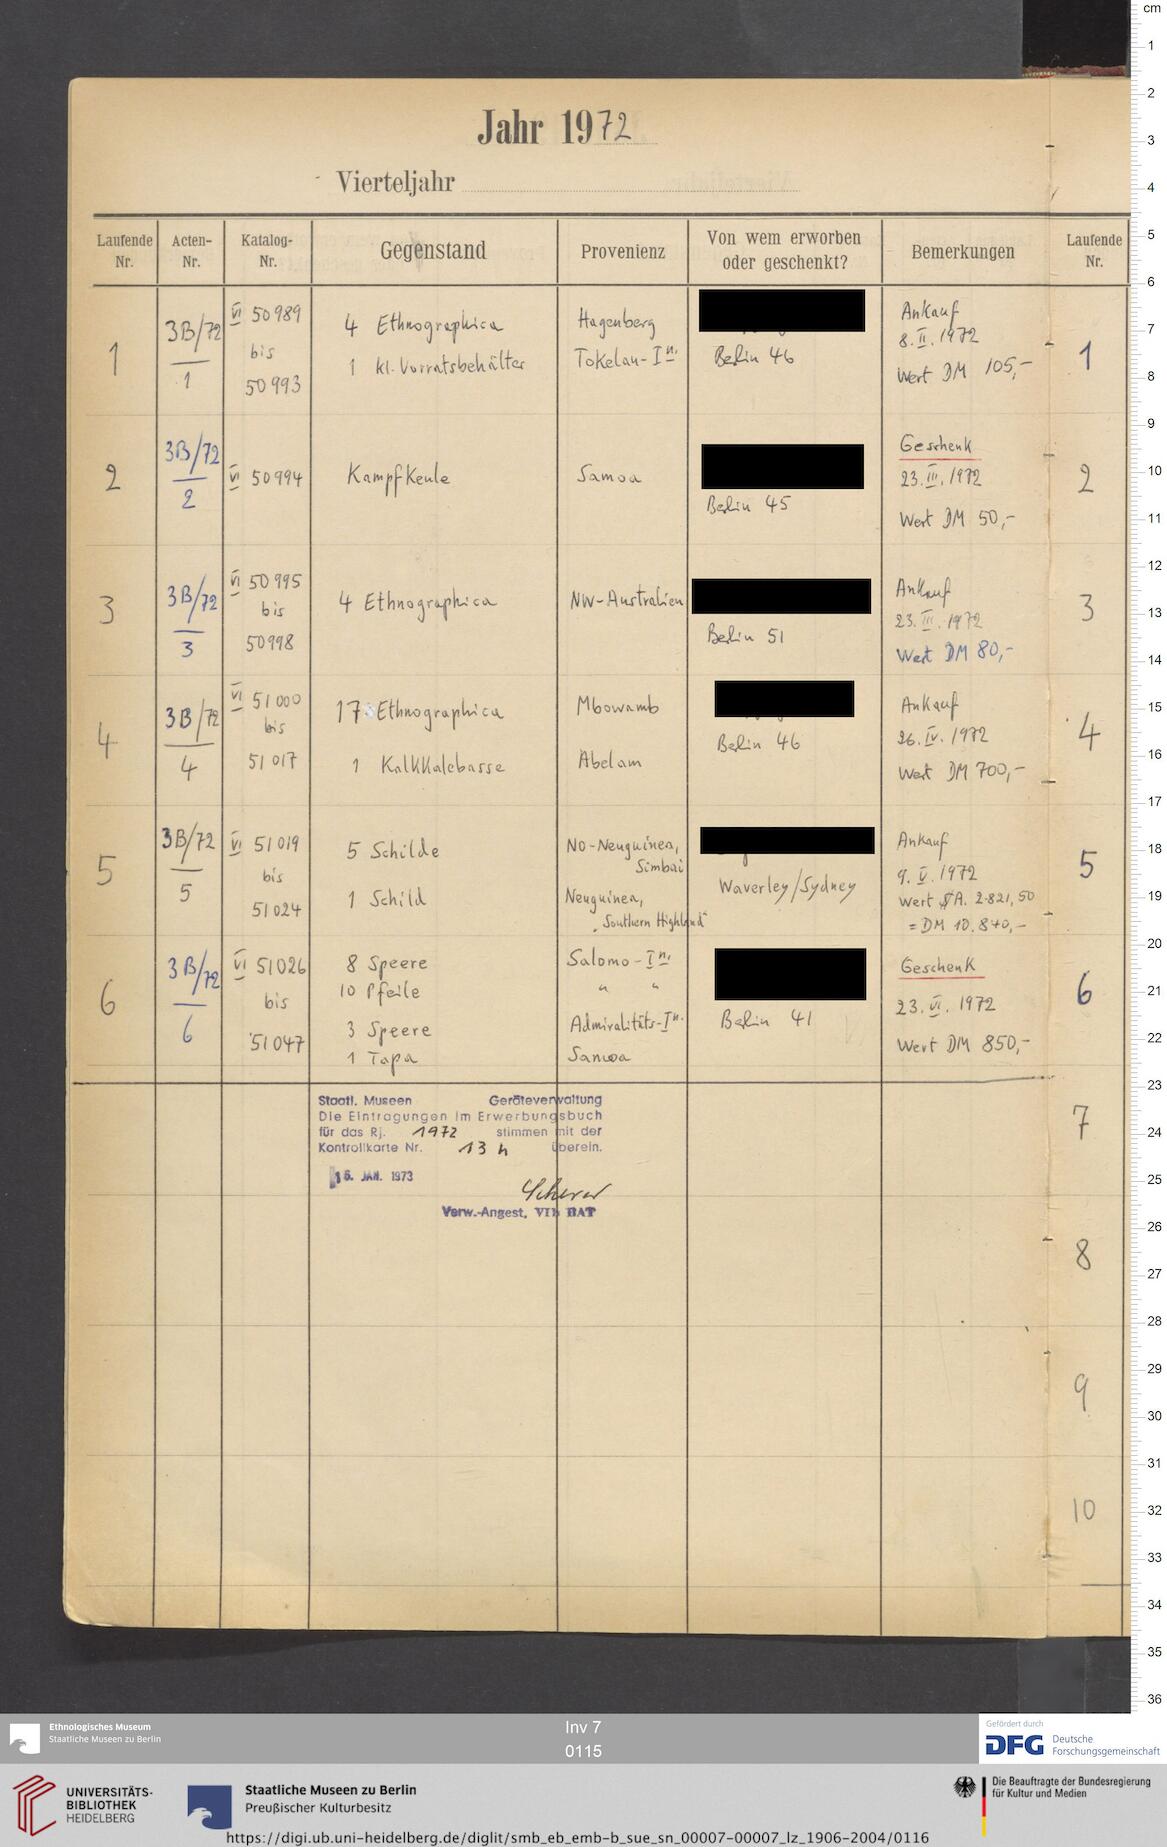 Jahr 1972
Vierteljahr
Laufende Nr. Acten-Nr. Katalog-Nr. Gegenstand Provenienz Von wem erworben oder geschenkt? Bemerkungen Laufende Nr.
1 3B/72 1 VI 50989 bis 50993
4 Ethnographica Hagenberg
1 kl. Vorratsbehälter Tokelau-In.
Berlin 46
Ankauf
8. II. 1972
Wert DM 105,-
1
2 3B/72 2 VI 50994 Kampfkeule Samoa
Berlin 45
Geschenk
23. III. 1972
Wert DM 50,-
2
3 3B/72 3 VI 50995 bis 50998
4 Ethnographica NW-Australien
Berlin 51
Ankauf
23. III. 1972
Wert DM 80,-
3
4 3B/72 4 VI 51000 bis 51017
17 Ethnographica Mbowamb
1 Kalkkalebasse Abelam
Berlin 46
Ankauf
26. IV. 1972
Wert DM 700,-
4
5 3B/72 5 VI 51019 bis 51024
5 Schilde NO-Neuguinea, Simbai
1 Schild Neuguinea, Southern Highland
Waverley/Sydney
Ankauf
9. V. 1972
Wert $A. 2.821,50
= DM 10.840,-
5
6 3B/72 6 VI 51026 bis 51047
8 Speere Salomo-In.
10 Pfeile " "
3 Speere Admiralitäts-In.
1 Tapa Samoa
Berlin 41
Geschenk
23. VI. 1972
Wert DM 850,-
6
Staatl. Museen Geräteverwaltung
Die Eintragungen im Erwerbungsbuch
für das Rj. 1972 stimmen mit der
Kontrollkarte Nr. 13 h überein.
16. JAN. 1973
Scherer
Verw.-Angest. VIb BAT
7
8
9
10
cm
1
2
3
4
5
6
7
8
9
10
11
12
13
14
15
16
17
18
19
20
21
22
23
24
25
26
27
28
29
30
31
32
33
34
35
36
Ethnologisches Museum
Staatliche Museen zu Berlin
Inv 7
0115
Gefördert durch
DFG Deutsche
Forschungsgemeinschaft
UNIVERSITÄTS-
BIBLIOTHEK
HEIDELBERG
Staatliche Museen zu Berlin
Preußischer Kulturbesitz
Die Beauftragte der Bundesregierung
für Kultur und Medien
https://digi.ub.uni-heidelberg.de/diglit/smb_eb_emb-b_sue_sn_00007-00007_lz_1906-2004/0116